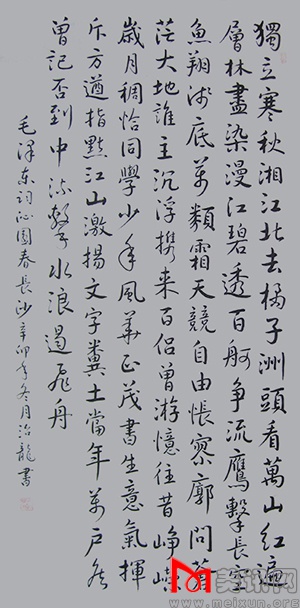 獨立寒秋湘江北去橘子洲頭看萬山紅遍
層林盡染漫江碧透百舸争流鷹擊長空
魚翔浅底萬類霜天競自由悵寥廓問蒼
茫大地誰主沉浮携来百侣曾游憶往昔崢嶸
歲月稠恰同學少年風華正茂書生意氣揮
斥方遒指點江山激揚文字糞土當年萬户侯
曾記否到中流擊水浪遏飛舟
毛澤東詞沁園春長沙辛卯年冬月治龍書
美讯网
www.meixun.org